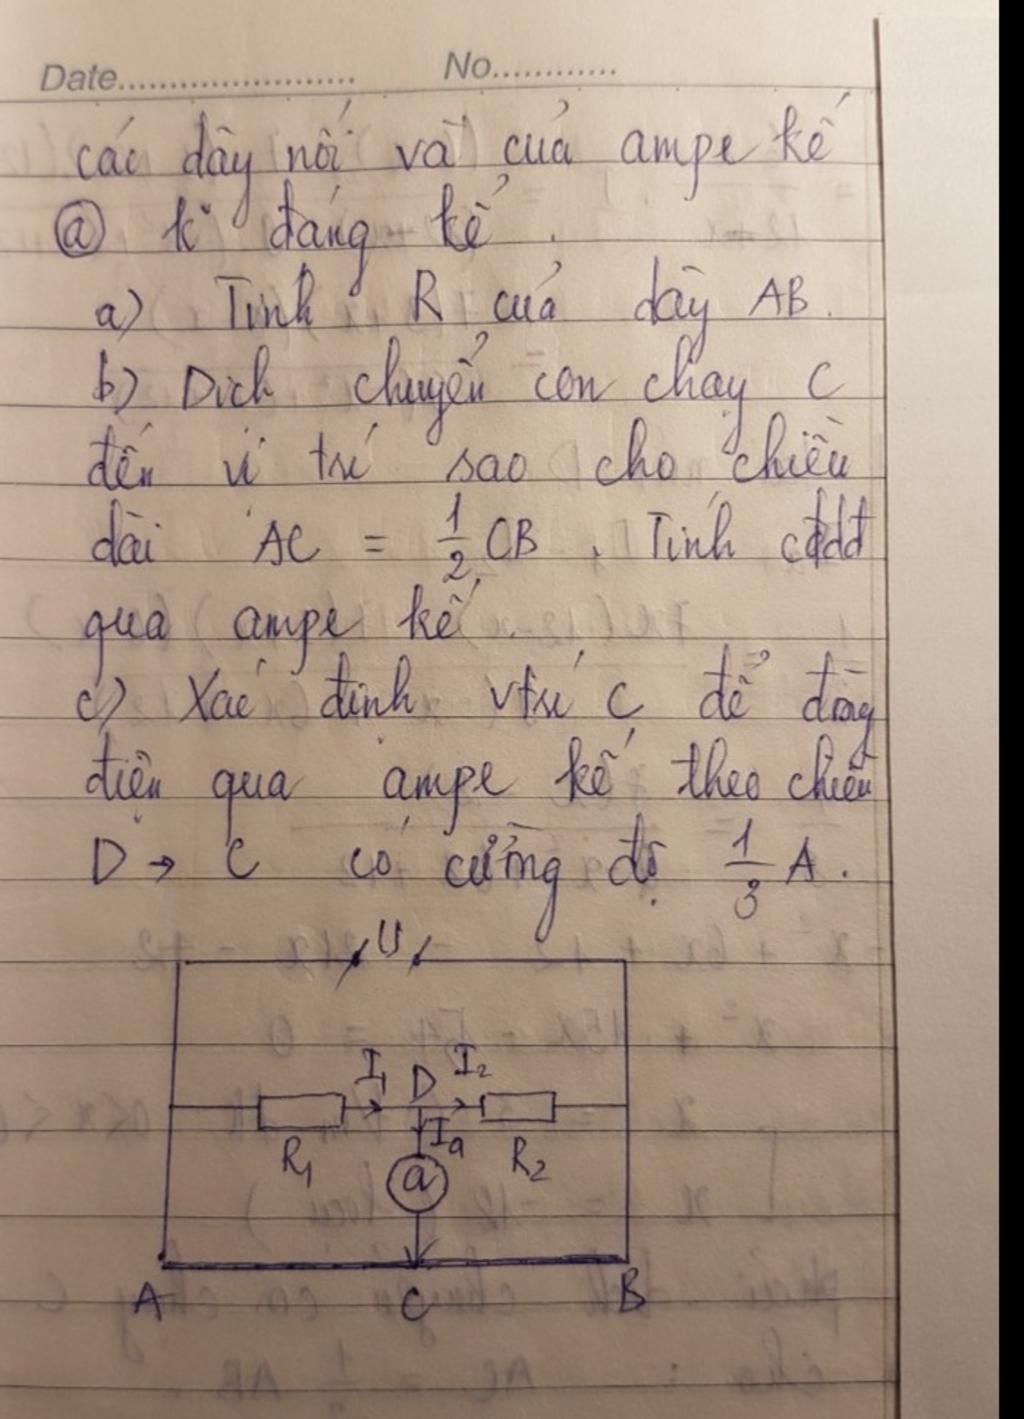 Date..................... No............
các dây nối và của ampe kế
ⓐ k° đáng kể.
a) Tính R của dây AB.
b) Dịch chuyển con chạy C
đến vị trí sao cho chiều
dài AC = 1/2 CB. Tính cđdđ
qua ampe kế.
c) Xác định vtrí C để dòng
điện qua ampe kế theo chiều
D → C có cường độ 1/3 A.
U
I₁ D I₂
R₁ Ia R₂
a
A C B